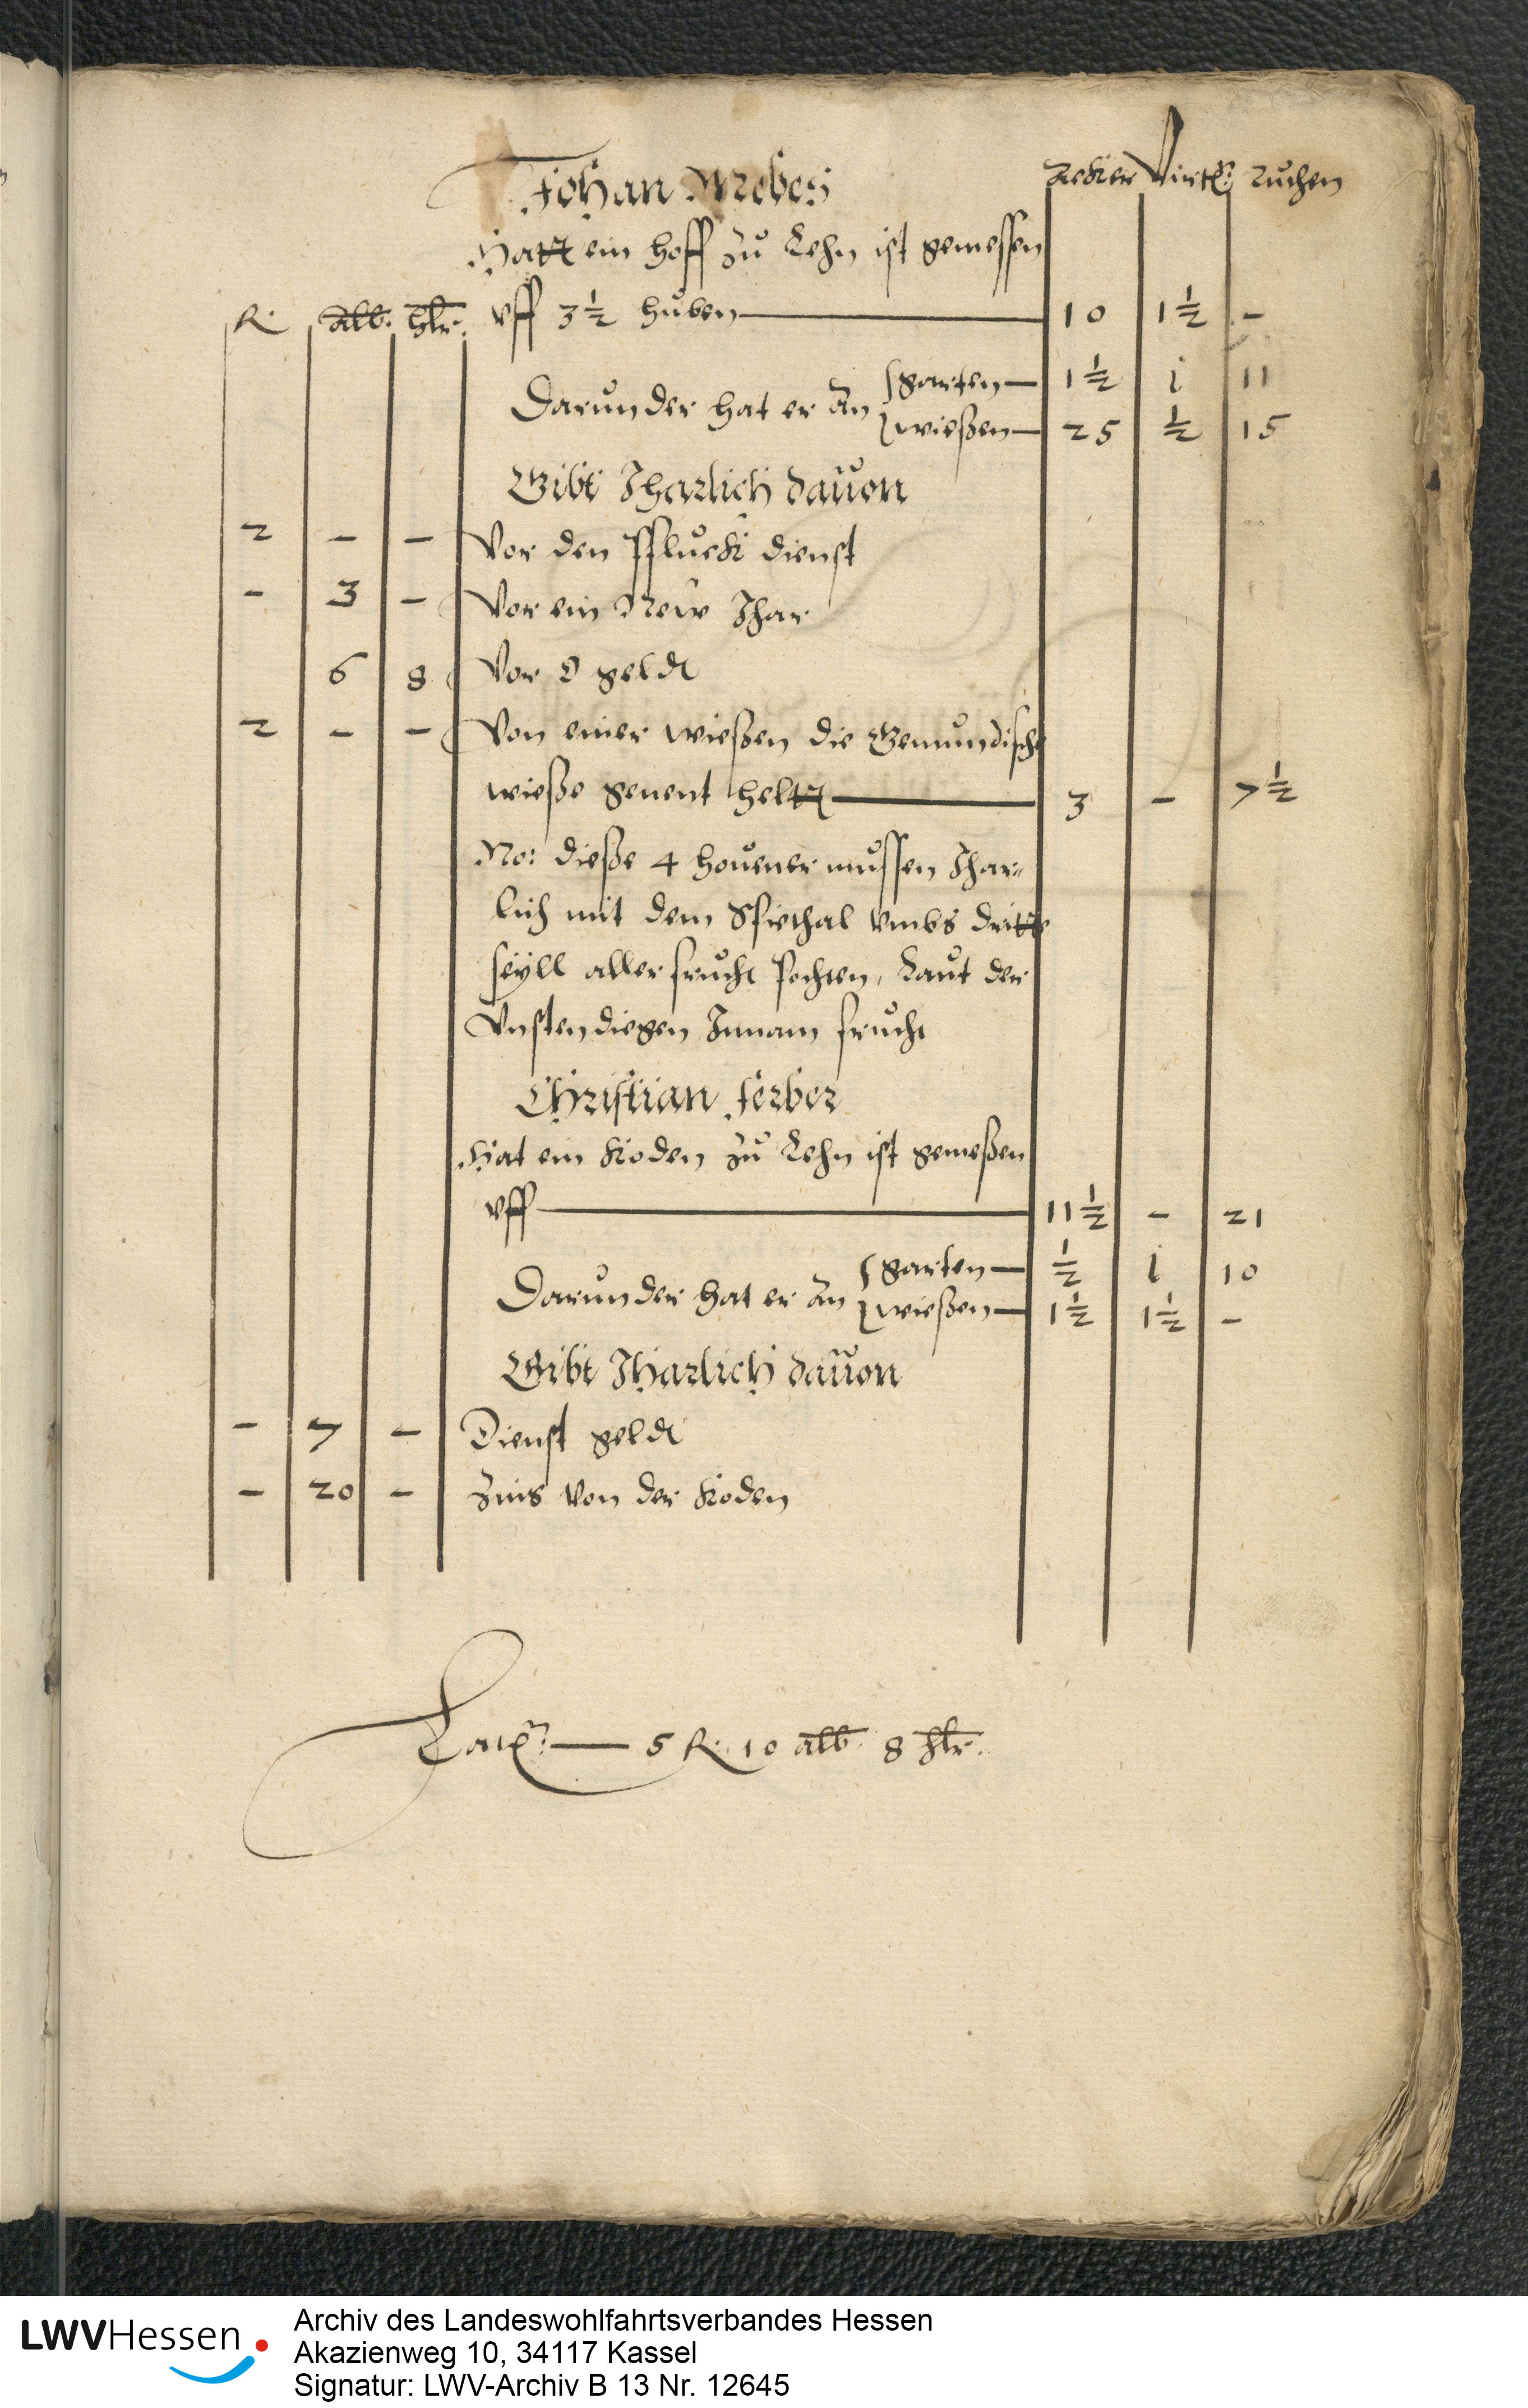 Acker Virtl: Ruthen
Johan Mebes
Hatt ein hoff zu Lehn ist gemessen
R. alb. hlr. vff 3½ huben — 10 1½ -
Darunder hat er an garten — 1½ 1 11
wießen — 25 ½ 15
Gibt Jharlich dauon
2 - - Vor den pfluck dienst
- 3 - Vor ein New Jhar
6 8 Vor geldt
2 - - Von einer wießen die Gemundische
wieße genent heltt — 3 - 7½
No: dieße 4 houener mussen Jhar-
lich mit dem Spithal vmbs dritte
theyll aller frucht , Laut der
Vnstendiegen Innam frucht
Christian Ferber
Hat ein Koden zu Lehn ist gemeßen
vff — 11½ - 21
Darunder hat er an garten — ½ 1 10
wießen — 1½ 1½ -
Gibt Jharlich dauon
- 7 - Dienst geldt
- 20 - Zins von der Koden
Latus — 5 R. 10 alb. 8 hlr.
LWVHessen
Archiv des Landeswohlfahrtsverbandes Hessen
Akazienweg 10, 34117 Kassel
Signatur: LWV-Archiv B 13 Nr. 12645